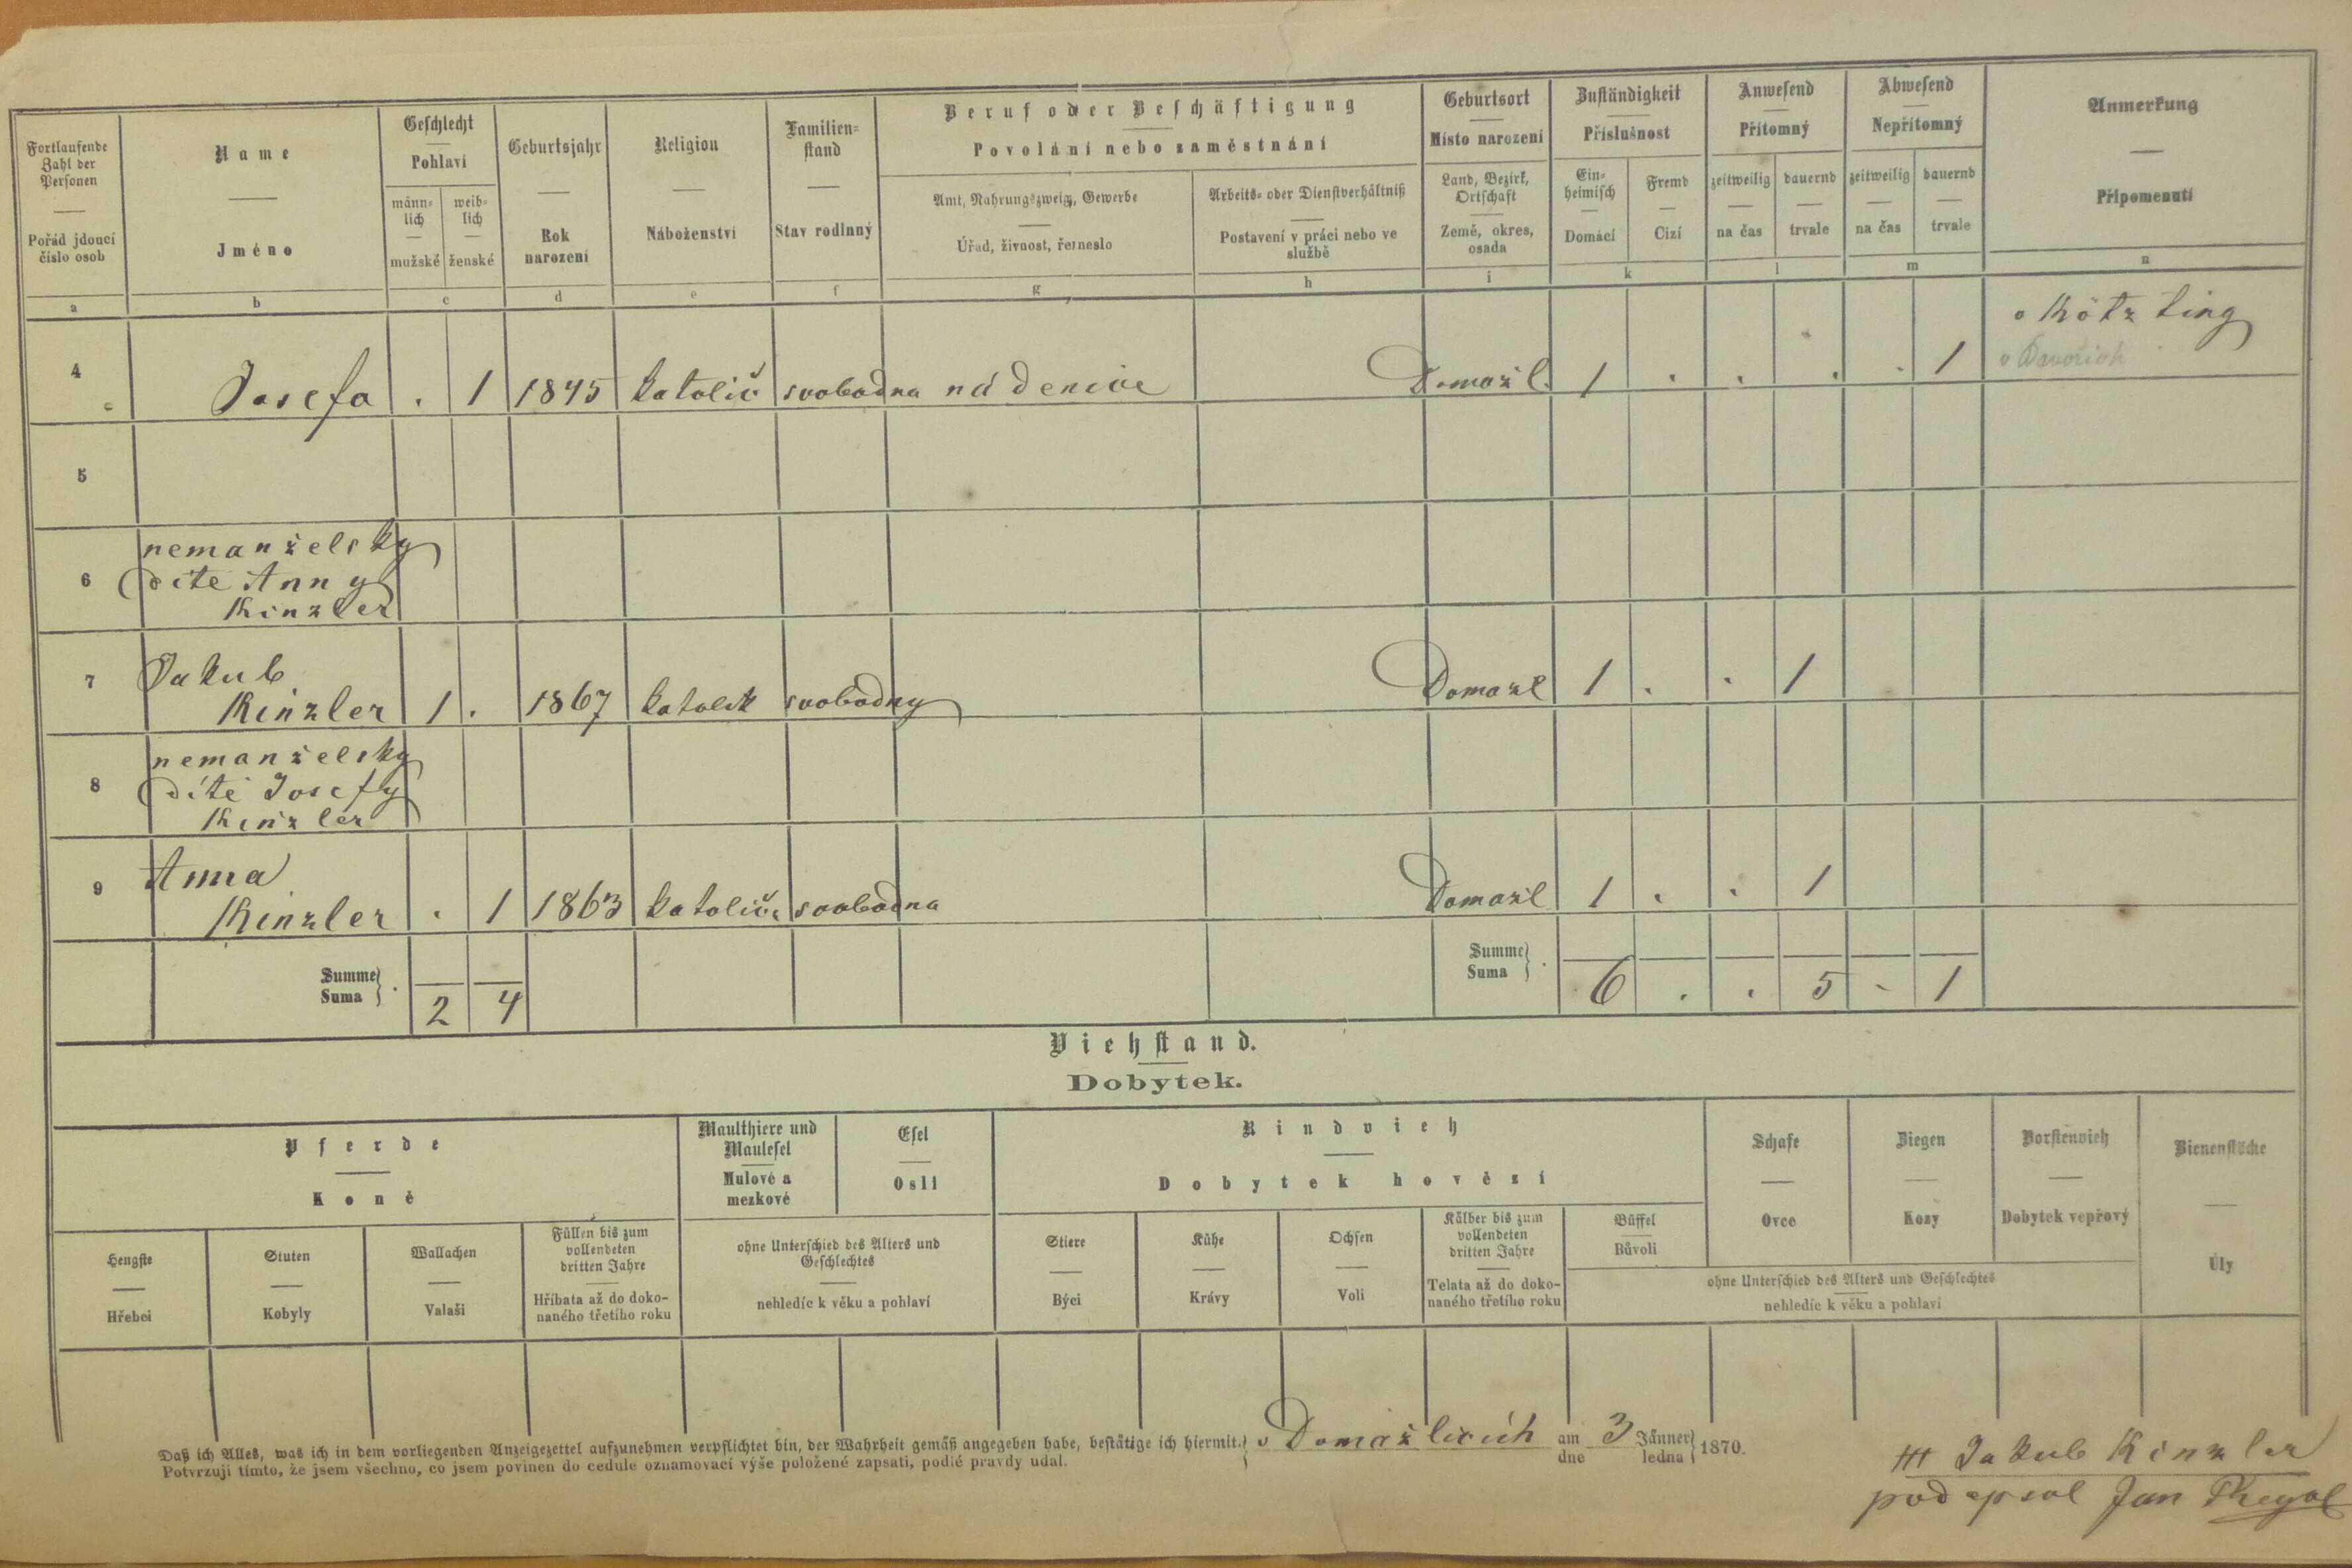 Fortlaufende Zahl der Personen
Pořád jdoucí číslo osob
a
Name
Jméno
b
Geschlecht
Pohlaví
männlich
mužské
weiblich
ženské
c
Geburtsjahr
Rok narození
d
Religion
Náboženství
e
Familienstand
Stav rodinný
f
Beruf oder Beschäftigung
Povolání nebo zaměstnání
Amt, Nahrungszweig, Gewerbe
Úřad, živnost, řemeslo
g
Arbeits- oder Dienstverhältniß
Postavení v práci nebo ve službě
h
Geburtsort
Místo narození
Land, Bezirk, Ortschaft
Země, okres, osada
i
Zuständigkeit
Příslušnost
Einheimisch
Domácí
Fremd
Cizí
k
Anwesend
Přítomný
zeitweilig
na čas
dauernd
trvale
l
Abwesend
Nepřítomný
zeitweilig
na čas
dauernd
trvale
m
Anmerkung
Připomenutí
n
4 Josefa . 1 1845 katolič svobodna nádenice Domažl. 1 . . . . 1 v Kötzting
v Bavořích
5
6 nemanželsky
dite Anny
Kinzler
7 Jakub
Kinzler 1 . 1867 katolik svobodny Domažl 1 . . 1
8 nemanželsky
díté Josefy
Kinzler
9 Anna
Kinzler . 1 1863 katolič. svobodna Domažl 1 . . 1
Summe
Suma
2 4
Summe
Suma
6 . . 5 - 1
Viehstand.
Dobytek.
Pferde
Koně
Hengste
Hřebci
Stuten
Kobyly
Wallachen
Valaši
Füllen bis zum vollendeten dritten Jahre
Hříbata až do dokonaného třetího roku
Maulthiere und Maulesel
Mulové a mezkové
Esel
Osli
ohne Unterschied des Alters und Geschlechtes
nehledíc k věku a pohlaví
Rindvieh
Dobytek hovězí
Stiere
Býci
Kühe
Krávy
Ochsen
Voli
Kälber bis zum vollendeten dritten Jahre
Telata až do dokonaného třetího roku
Büffel
Bůvoli
Schafe
Ovce
Ziegen
Kozy
Borstenvieh
Dobytek vepřový
ohne Unterschied des Alters und Geschlechtes
nehledíc k věku a pohlaví
Bienenstöcke
Úly
Daß ich Alles, was ich in dem vorliegenden Anzeigezettel aufzunehmen verpflichtet bin, der Wahrheit gemäß angegeben habe, bestätige ich hiermit.
Potvrzuji tímto, že jsem všechno, co jsem povinen do cedule oznamovací výše položené zapsati, podlé pravdy udal.
v Domažlicích am
dne 3 Jänner
ledna 1870.
+++ Jakub Kinzler
podepsal Jan